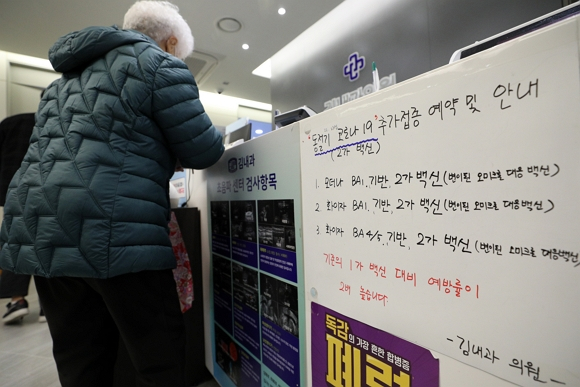 "동절기 코로나 19" 추가접종 예약 및 안내
(2가 백신)
1. 모더나 BA1.기반, 2가 백신 (변이된 오미크론 대응 백신)
2. 화이자 BA1.기반, 2가 백신 (변이된 오미크론 대응백신)
3. 화이자 BA4/5.기반, 2가 백신 (변이된 오미크론 대응백신)
기존의 1가 백신 대비 예방률이
2배 높습니다
-김내과 의원-
김내과
초음파 센터 검사항목
독감의 가장 흔한 합병증
폐렴